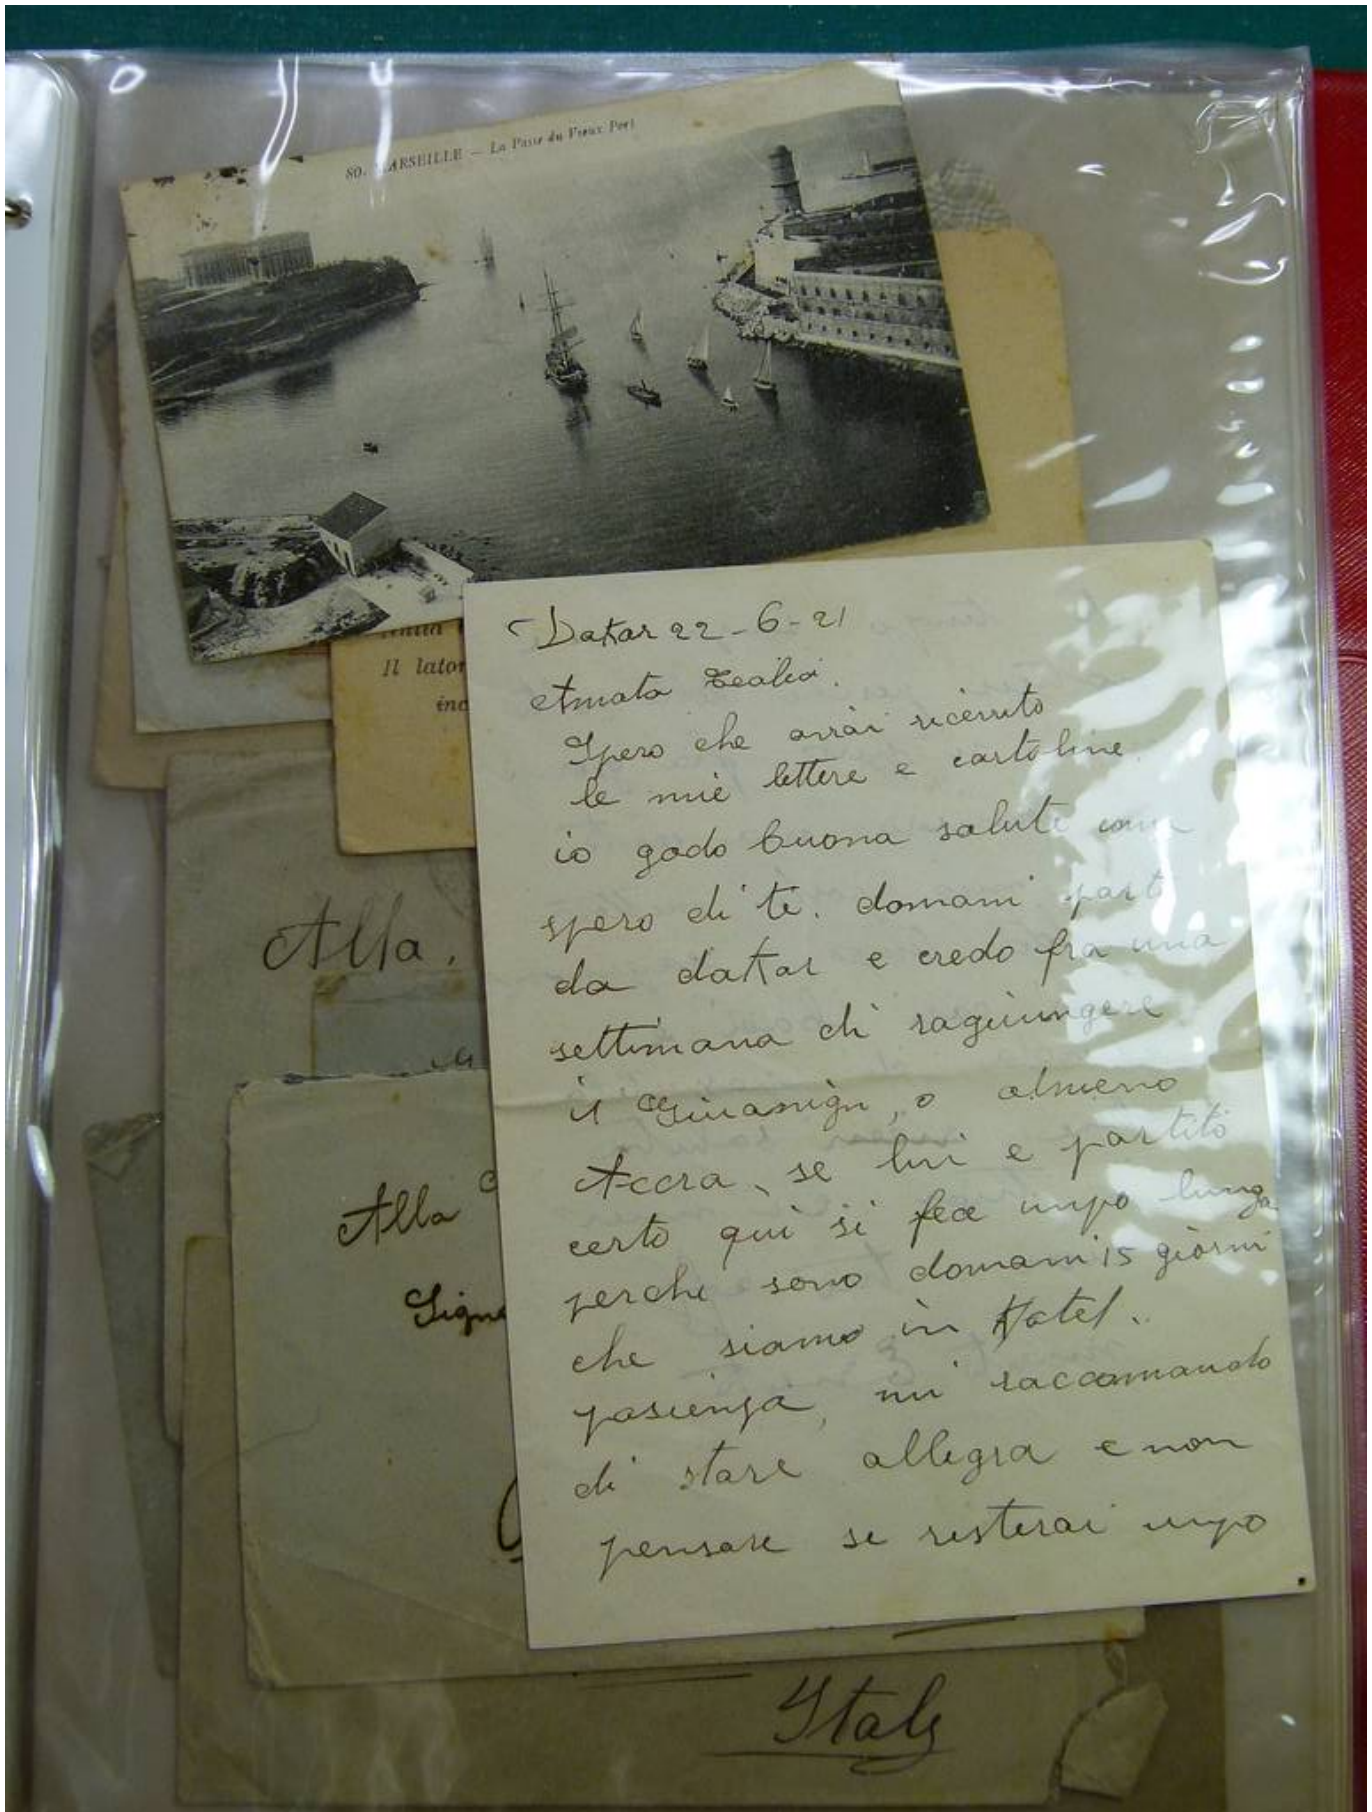 80. MARSEILLE — La Passe du Vieux Port
Il lator
inc
Alla.
Alla
Signo
Italy
Dakar 22-6-21
Amata
Spero che avrai ricevuto
le mie lettere e cartoline
io godo buona salute come
spero di te. domani parto
da dakar e credo fra una
settimana di ragiungere
il o almeno
Accra, se lui e partito
certo qui si fece unpo lunga
perche sono domani 15 giorni
che siamo in Hotel..
pasienza, mi raccomando
di stare allegra e non
pensare se resterai unpo